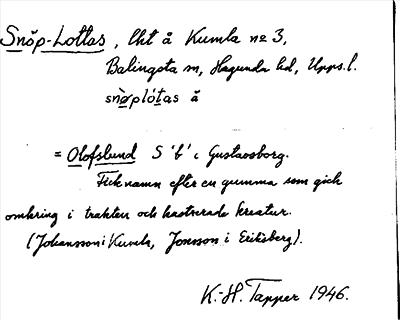 Snöp-Lottas, lht å Kumla no 3,
Balingsta sn, Hagunda hd, Upps. l.
snø̀plótas å
= Olofslund S 'b' i Gustavsborg.
Fick namn efter en gumma som gick
omkring i trakten och kastrerade kreatur.
(Johansson i Kumla, Jonsson i Eriksberg).
K.-H. Tapper 1946.